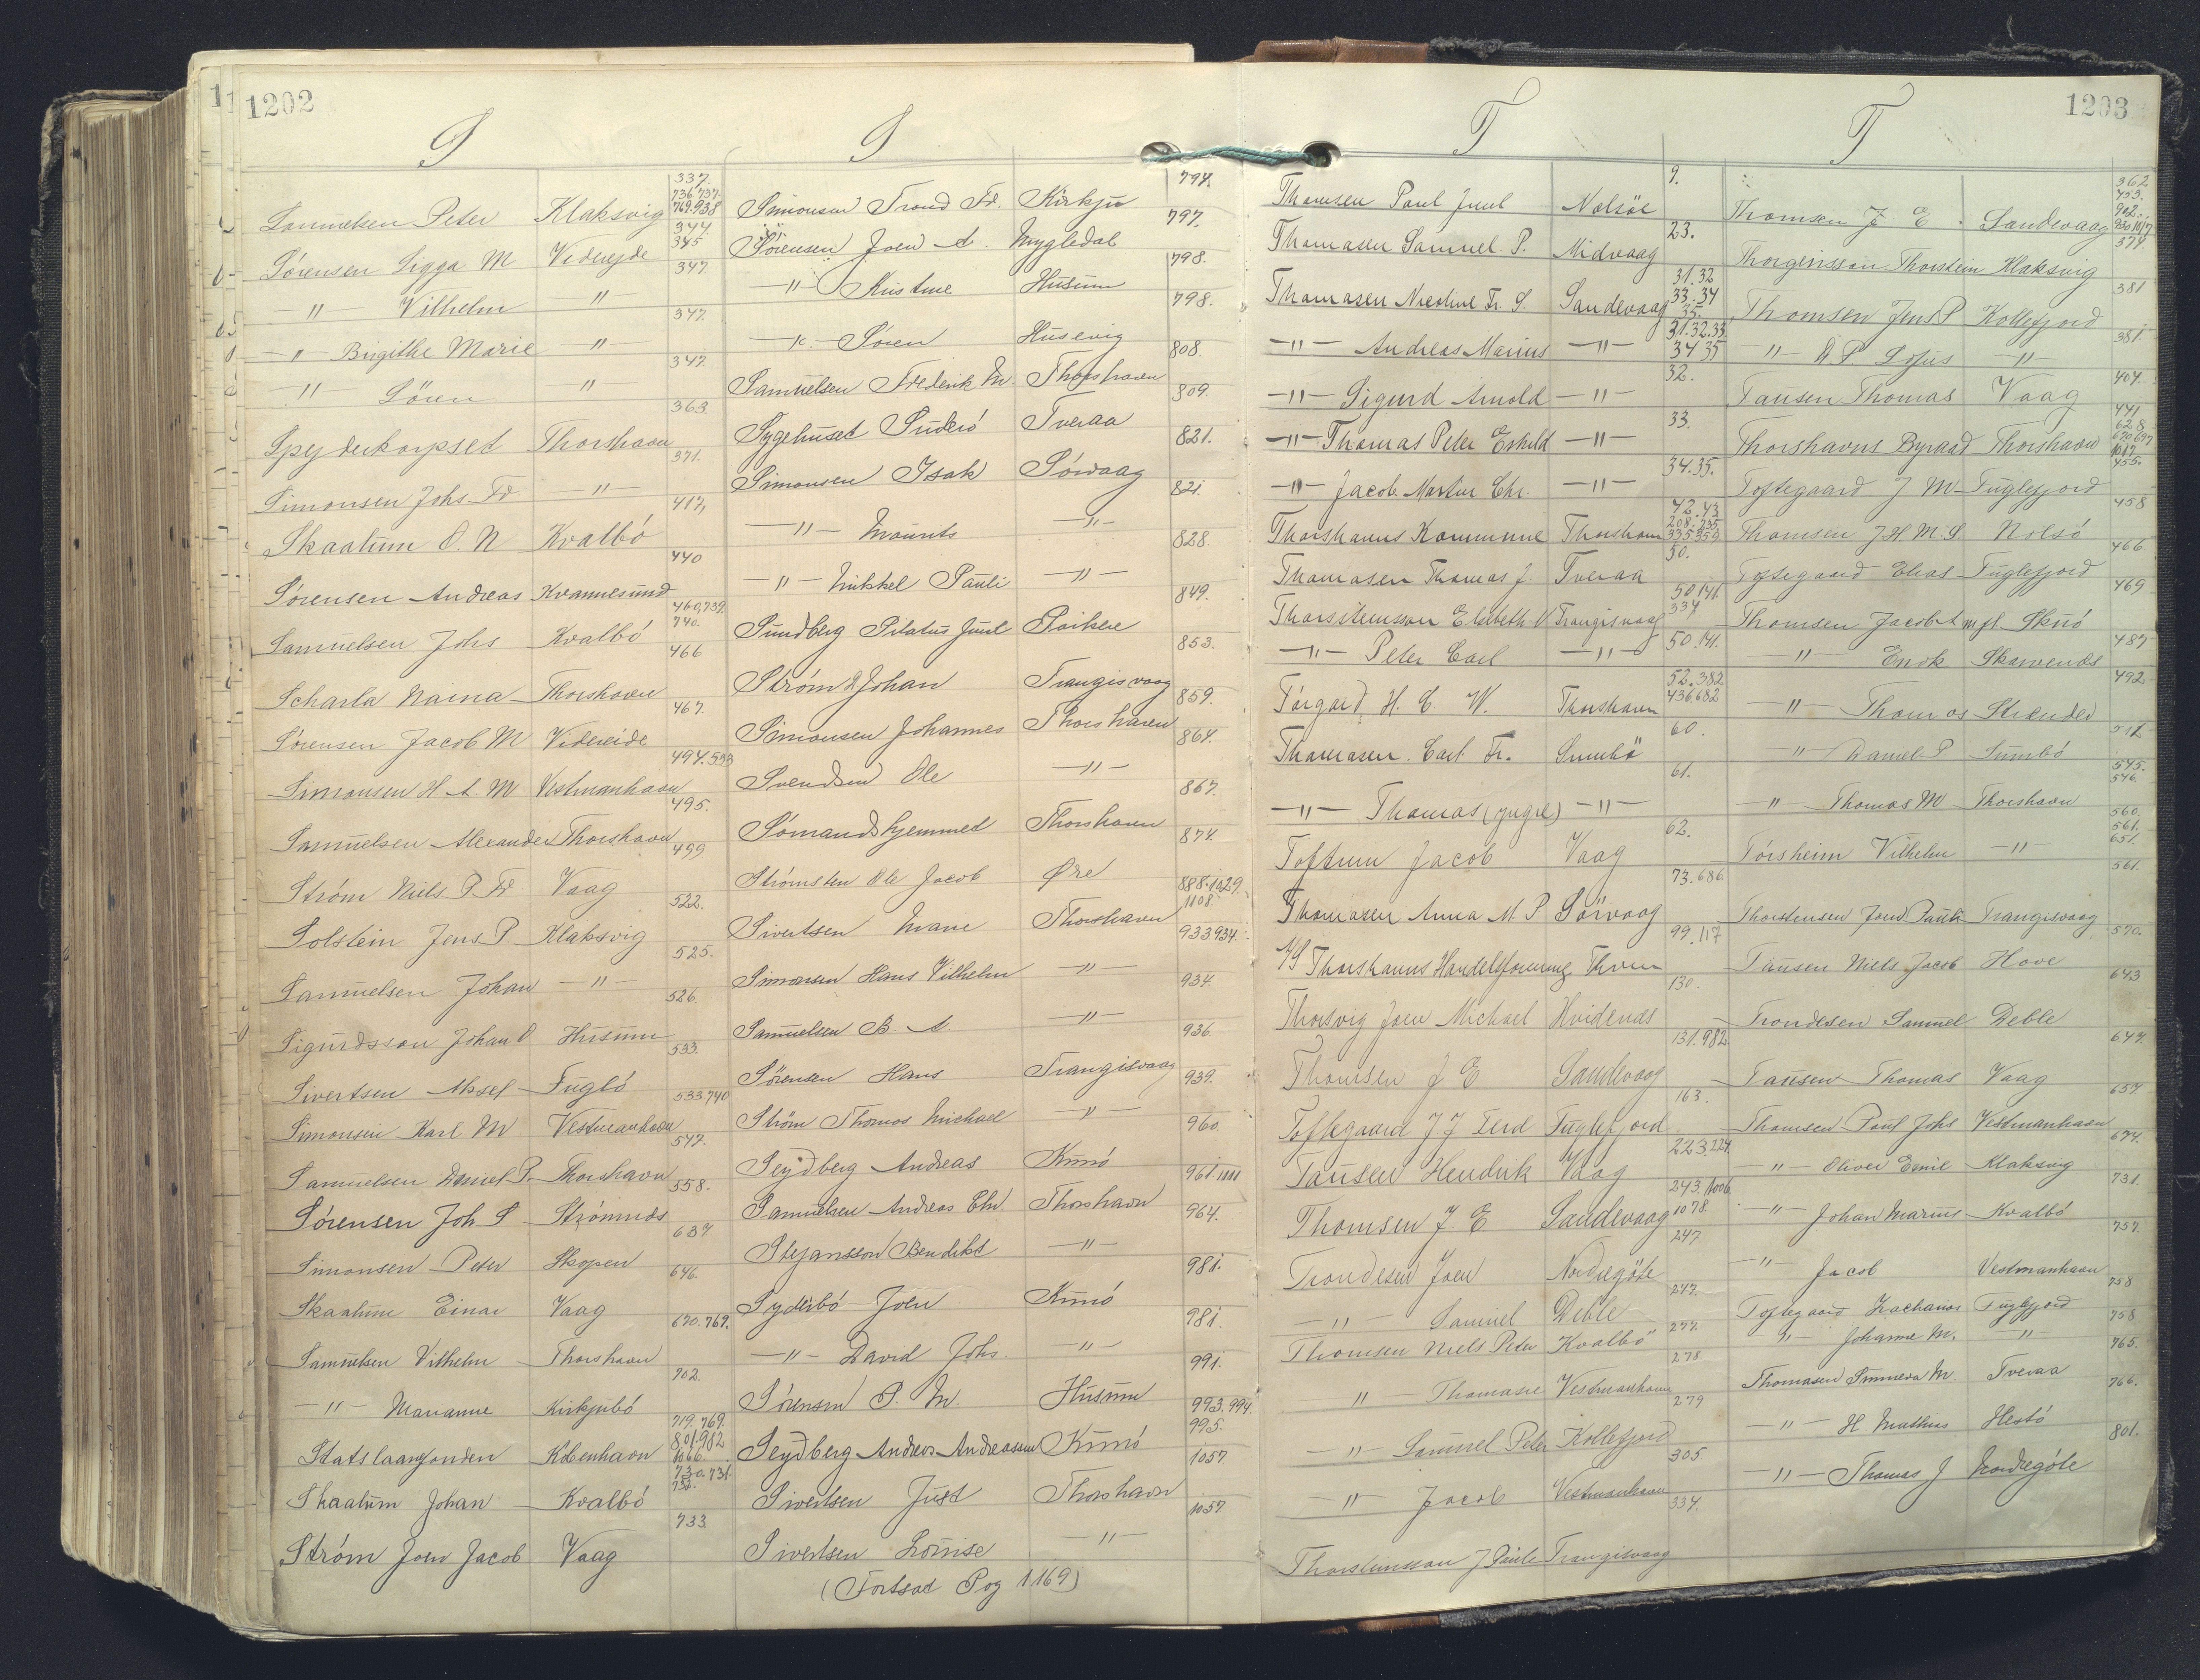 1202
S
Samuelsen Peter Klaksvig 337. 736.737. 769.938
Sørensen Sigga M Viderejde 344 345
-"- Vilhelm " 347
-"- Birgithe Marie " 347.
-"- Sören " 347.
Spejderkorpset Thorshavn 363.
Simonsen Johs Fr -"- 371.
Skaalum O. N Kvalbö 417,
Sörensen Andreas Kvannesund 440
Samuelsen Johs Kvalbö 460,739. 740.
Scharla Naina Thorshavn 466
Sörensen Jacob M Videreide 467.
Simonsen H A. M Vestmanhavn 494.533
Samuelsen Alexander Thorshavn 495.
Ström Niels P. Fr Vaag 499
Solstein Jens P. Klaksvig 522.
Samuelsen Johan -"- 525.
Sigurdsson Johan O Husum 526.
Sivertsen Aksel Fuglö 533.
Simonsen Karl M Vestmanhavn 533 740
Samuelsen Daniel P. Thorshavn 547.
Sörensen Joh S Strömnæs 558.
Simonsen Peter Skopen 637
Skaalum Einar Vaag 646.
Samuelsen Vilhelm Thorshavn 670.769.
-"- Marianne Kirkjubö 702.
Statslaanefonden Köbenhavn 719.769. 801.982 1066
Skaalum Johan Kvalbö 730.731. 738.
Ström Joen Jacob Vaag 733
S
Simonsen Trond Fr. Kirkju 794.
Sørensen Joen A. Mygledal 797.
-"- Kristine Husum 798.
-"- Sören Husevig 798.
Samuelsen Frederik M. Thorshavn 808.
Sygehuset Suderö Tveraa 809.
Simonsen Isak Sörvaag 821.
-"- Mourits -"- 821.
-"- Mikkel Pauli -"- 828.
Sundberg Pilatus Juul Porkere 849.
Ström Johan Trangisvaag 853.
Simonsen Johannes Thorshavn 859.
Svendsen Ole -"- 864.
Sömandshjemmet Thorshavn 867.
Strömsten Ole Jacob Øre 874.
Sivertsen Marie Thorshavn 888.1029. 1108
Simonsen Hans Vilhelm -"- 933 934.
Samuelsen B. A -"- 934.
Sörensen Hans Trangisvaag 936.
Ström Thomas Michael -"- 939.
Seydberg Andreas Kunö 960.
Samuelsen Andreas Chr Thorshavn 961.1111
Stefansson Bendikt -"- 964.
Syderbö Joen Kunö 981.
-"- David Johs. -"- 981.
Sörensen P. M. Husum 991.
Seydberg Andreas Andreassen Kunö 993.994. 995.
Sivertsen Just Thorshavn 1057
Sivertsen Louise -"- 1057
(Fortsat Pag 1169)
1203
T
Thomsen Poul Juul Nolsöe 9.
Thomasen Samuel P. Midvaag 23.
Thomasen Nicoline Fr. S. Sandevaag 31.32 33.34 35.
-"- Andreas Marius -"- 31.32.33 34 35
-"- Sigurd Arnold -"- 32.
-"- Thomas Peter Eskild -"- 33.
-"- Jacob Martin Chr. -"- 34.35.
Thorshavns Kommune Thorshavn 42.43 208.235. 335 359
Thomasen Thomas J. Tveraa 50.
Thorsteinsson Elisbeth M Trangisvaag 50.141. 334
-"- Peter Carl -"- 50.141.
Tórgard H. C. W. Thorshavn 52.382 436.682
Thomasen Carl Fr. Sumbö 60.
-"- Thomas (yngre) -"- 61.
Toftum Jacob Vaag 62.
Thomasen Anna M. P Sörvaag 73.686
A/S Thorshavns Handelsforening Thavn 99.117
Thorsvig Joen Michael Hvidenæs 130.
Thomsen J E Sandevaag 131.982
Toftegaard J J Ferd Fuglefjord 163.
Tausen Hendrik Vaag 223.224.
Thomsen J E Sandevaag 243.1006 1078
Trondesen Joen Nordregöte 247.
-"- Samuel Deble 247.
Thomsen Niels Peter Kvalbö 277.
" Thomasie Vestmanhavn 278
-"- Samuel Peter Kollefjord 279
" Jacob Vestmanhavn 305
Thorsteinsson J Pauli Trangisvaag 334.
T
Thomsen J E. Sandevaag 362 453. 902. 950 1017
Thorgeirsson Thorstein Klaksvig 374.
Thomsen Jens P Kollefjord 381
" D P Sofus -"- 381.
Tausen Thomas Vaag 404.
Thorshavns Byraad Thorshavn 441 628 670 697 1017
Toftegaard J M Fuglefjord 455.
Thomsen J H M. S. Nolsö 458
Toftegaard Elias Fuglefjord 466.
Thomsen Jacob A m.fl. Skuö 469
" Enok Skarvenæs 487
" Thomas Strænder 492
" Daniel P Sumbö 512.
" Thomas M Thorshavn 545. 546.
Torsheim Vilhelm -"- 560. 561. 651.
Thorstensen Joen Pauli Trangisvaag 561.
Tausen Niels Jacob Hove 570.
Trondesen Samuel Deble 643
Tausen Thomas Vaag 647.
Thomsen Poul Johs Vestmanhavn 657
-"- Oliver Emil Klaksvig 674.
-"- Johan Marius Kvalbö 731.
-"- Jacob Vestmanhavn 757.
Toftegaard Zacharias Fuglefjord 758
" Johanne M. " 758
Thomasen M. Tveraa 765.
-"- H Mathias Hestö 766.
-"- Thomas J Nordregöte 801.